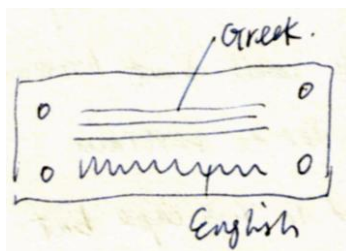 Greek.
English